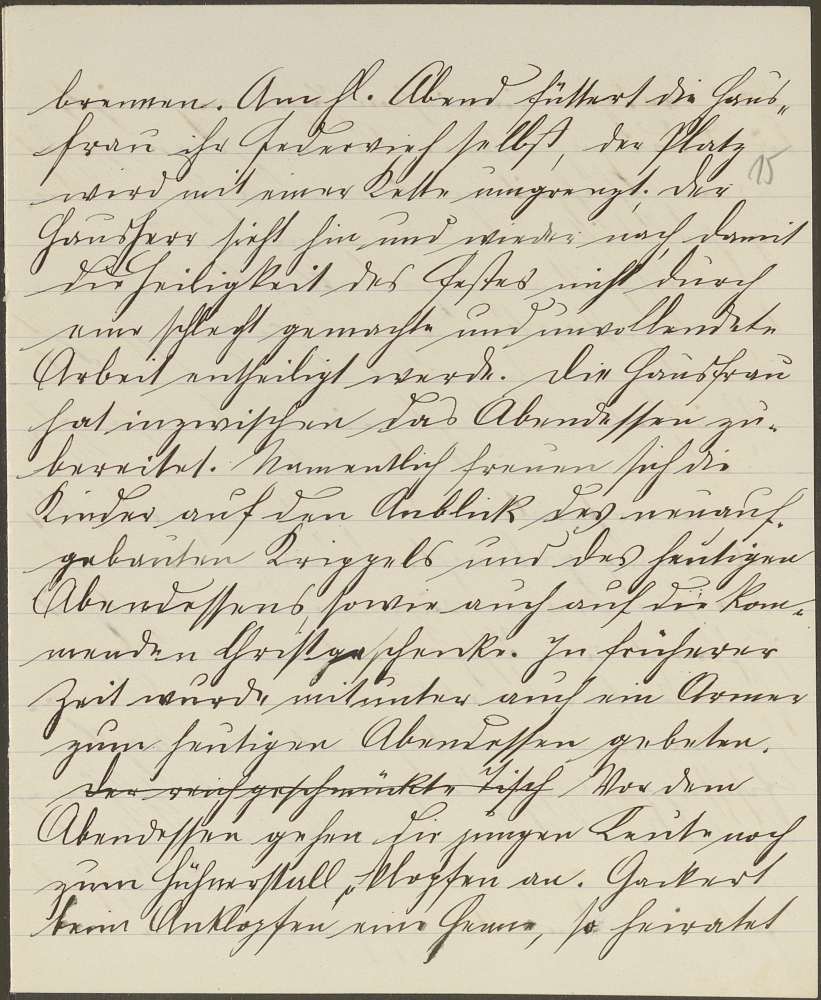 brennen. Am hl. Abend füttert die Haus-
frau ihr Federvieh selbst, der Platz
15
wird mit einer Kette umgrenzt. Der
Hausherr sieht hin und wieder nach damit
die Heiligkeit des Festes nicht durch
eine schlecht gemachte und unvollendete
Arbeit entheiligt werde. Die Hausfrau
hat inzwischen das Abendessen zu-
bereitet. Namentlich freuen sich die
Kinder auf den Anblick des neuauf-
gebauten Krippels und des heutigen
Abendessens, sowie auch auf die kom-
menden Christgeschenke. In früherer
Zeit wurde mitunter auch ein Armer
zum heutigen Abendessen gebeten.
Der reichgeschmückte Tisch Vor dem
Abendessen gehen die jungen Leute noch
zum Hühnerstall, klopfen an. Gackert
beim Anklopfen eine Henne, so heiratet